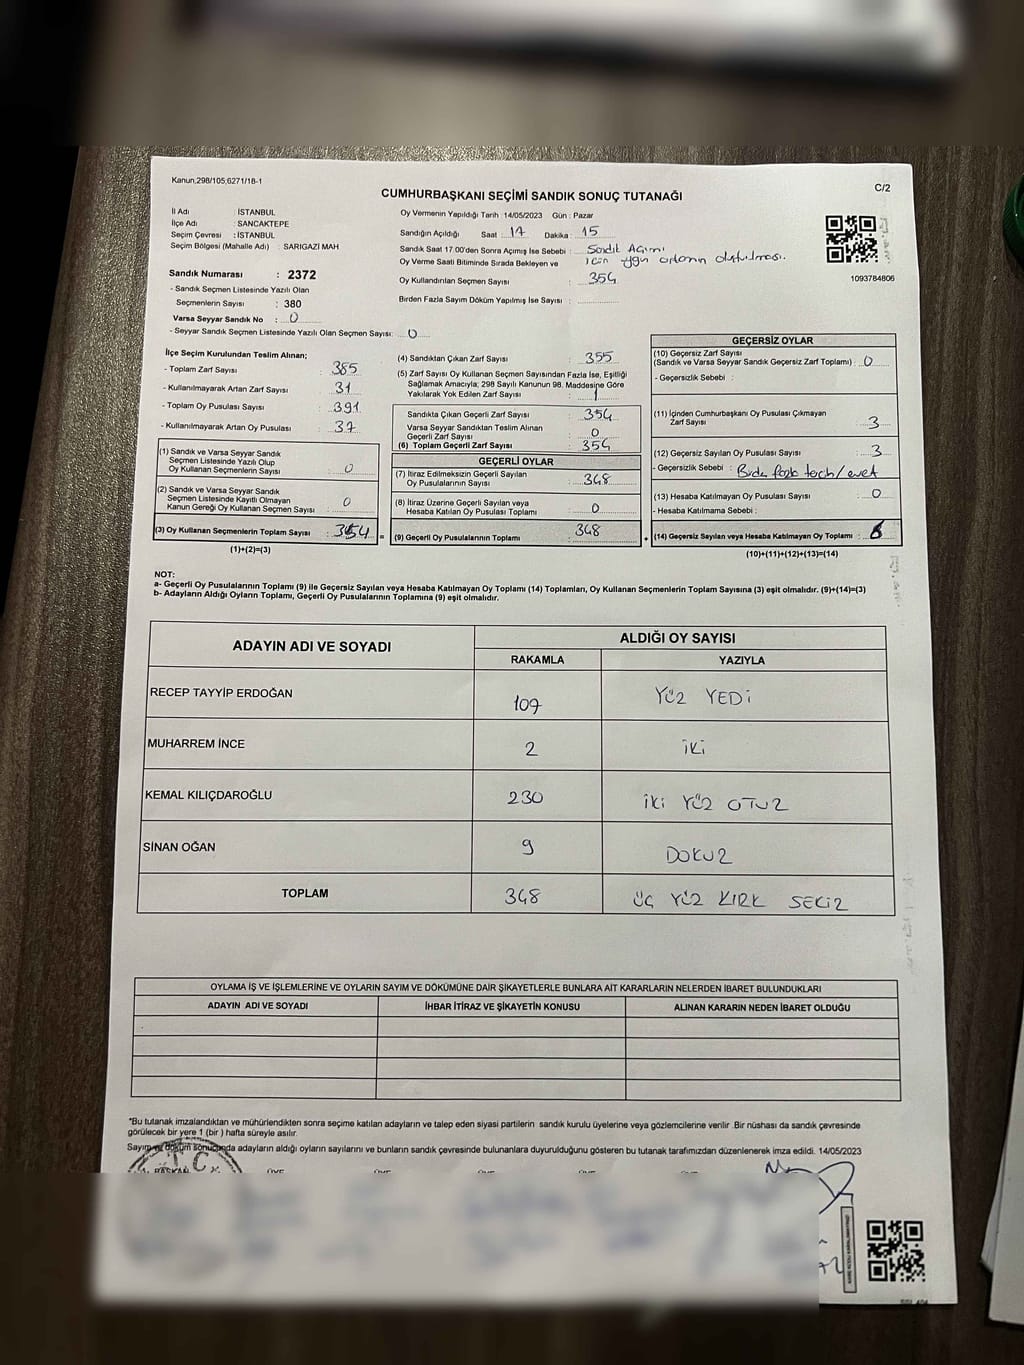 Kanun,298/105;6271/18-1
C/2
CUMHURBAŞKANI SEÇİMİ SANDIK SONUÇ TUTANAĞI
İl Adı : İSTANBUL
İlçe Adı : SANCAKTEPE
Seçim Çevresi : İSTANBUL
Seçim Bölgesi (Mahalle Adı) : SARIGAZİ MAH
Oy Vermenin Yapıldığı Tarih 14/05/2023 Gün : Pazar
Sandığın Açıldığı Saat : 17 Dakika : 15
Sandık Saat 17.00'den Sonra Açımış İse Sebebi : Sandık Açımı
Oy Verme Saati Bitiminde Sırada Bekleyen ve için uygun ortamın oluşturulması.
Oy Kullandırılan Seçmen Sayısı : 354
Birden Fazla Sayım Döküm Yapılmış İse Sayısı :
1093784806
Sandık Numarası : 2372
- Sandık Seçmen Listesinde Yazılı Olan
Seçmenlerin Sayısı : 380
Varsa Seyyar Sandık No : 0
- Seyyar Sandık Seçmen Listesinde Yazılı Olan Seçmen Sayısı: 0
İlçe Seçim Kurulundan Teslim Alınan;
- Toplam Zarf Sayısı : 385
- Kullanılmayarak Artan Zarf Sayısı : 31
- Toplam Oy Pusulası Sayısı : 391
- Kullanılmayarak Artan Oy Pusulası : 37
(1) Sandık ve Varsa Seyyar Sandık
Seçmen Listesinde Yazılı Olup
Oy Kullanan Seçmenlerin Sayısı : 0
(2) Sandık ve Varsa Seyyar Sandık
Seçmen Listesinde Kayıtlı Olmayan
Kanun Gereği Oy Kullanan Seçmen Sayısı : 0
(3) Oy Kullanan Seçmenlerin Toplam Sayısı : 354 =
(1)+(2)=(3)
(4) Sandıktan Çıkan Zarf Sayısı : 355
(5) Zarf Sayısı Oy Kullanan Seçmen Sayısından Fazla İse, Eşitliği
Sağlamak Amacıyla; 298 Sayılı Kanunun 98. Maddesine Göre
Yakılarak Yok Edilen Zarf Sayısı : 1
Sandıkta Çıkan Geçerli Zarf Sayısı : 354
Varsa Seyyar Sandıktan Teslim Alınan
Geçerli Zarf Sayısı : 0
(6) Toplam Geçerli Zarf Sayısı : 354
GEÇERLİ OYLAR
(7) İtiraz Edilmeksizin Geçerli Sayılan
Oy Pusulalarının Sayısı : 348
(8) İtiraz Üzerine Geçerli Sayılan veya
Hesaba Katılan Oy Pusulası Toplamı : 0
(9) Geçerli Oy Pusulalarının Toplamı : 348 +
GEÇERSİZ OYLAR
(10) Geçersiz Zarf Sayısı
(Sandık ve Varsa Seyyar Sandık Geçersiz Zarf Toplamı) : 0
- Geçersizlik Sebebi :
(11) İçinden Cumhurbaşkanı Oy Pusulası Çıkmayan
Zarf Sayısı : 3
(12) Geçersiz Sayılan Oy Pusulası Sayısı : 3
- Geçersizlik Sebebi : Birden fazla tercih/evet
(13) Hesaba Katılmayan Oy Pusulası Sayısı : 0
- Hesaba Katılmama Sebebi :
(14) Geçersiz Sayılan veya Hesaba Katılmayan Oy Toplamı : 6
(10)+(11)+(12)+(13)=(14)
NOT:
a- Geçerli Oy Pusulalarının Toplamı (9) ile Geçersiz Sayılan veya Hesaba Katılmayan Oy Toplamı (14) Toplamları, Oy Kullanan Seçmenlerin Toplam Sayısına (3) eşit olmalıdır. (9)+(14)=(3)
b- Adayların Aldığı Oyların Toplamı, Geçerli Oy Pusulalarının Toplamına (9) eşit olmalıdır.
ADAYIN ADI VE SOYADI
ALDIĞI OY SAYISI
RAKAMLA YAZIYLA
RECEP TAYYİP ERDOĞAN 107 YÜZ YEDİ
MUHARREM İNCE 2 İKİ
KEMAL KILIÇDAROĞLU 230 İKİ YÜZ OTUZ
SİNAN OĞAN 9 DOKUZ
TOPLAM 348 ÜÇ YÜZ KIRK SEKİZ
OYLAMA İŞ VE İŞLEMLERİNE VE OYLARIN SAYIM VE DÖKÜMÜNE DAİR ŞİKAYETLERLE BUNLARA AİT KARARLARIN NELERDEN İBARET BULUNDUKLARI
ADAYIN ADI VE SOYADI İHBAR İTİRAZ VE ŞİKAYETİN KONUSU ALINAN KARARIN NEDEN İBARET OLDUĞU
*Bu tutanak imzalandıktan ve mühürlendikten sonra seçime katılan adayların ve talep eden siyasi partilerin sandık kurulu üyelerine veya gözlemcilerine verilir .Bir nüshası da sandık çevresinde
görülecek bir yere 1 (bir ) hafta süreyle asılır.
Sayım ve döküm sonucunda adayların aldığı oyların sayılarını ve bunların sandık çevresinde bulunanlara duyurulduğunu gösteren bu tutanak tarafımızdan düzenlenerek imza edildi. 14/05/2023
T.C.
BAŞKAN